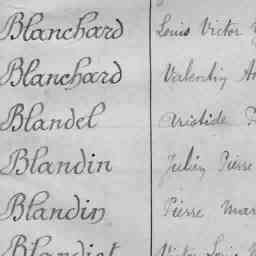 Blanchard Louis Victor
Blanchard Valentin
Blandel Aristide
Blandin Julien Pierre
Blandin Pierre Mar
Blandiot Victor Louis